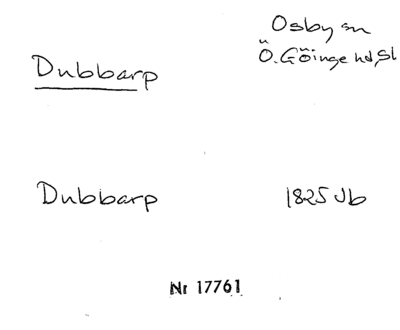 Osby sn
Dubbarp
Ö. Göinge hd, Sk
Dubbarp
1825 Jb
Nr 17761